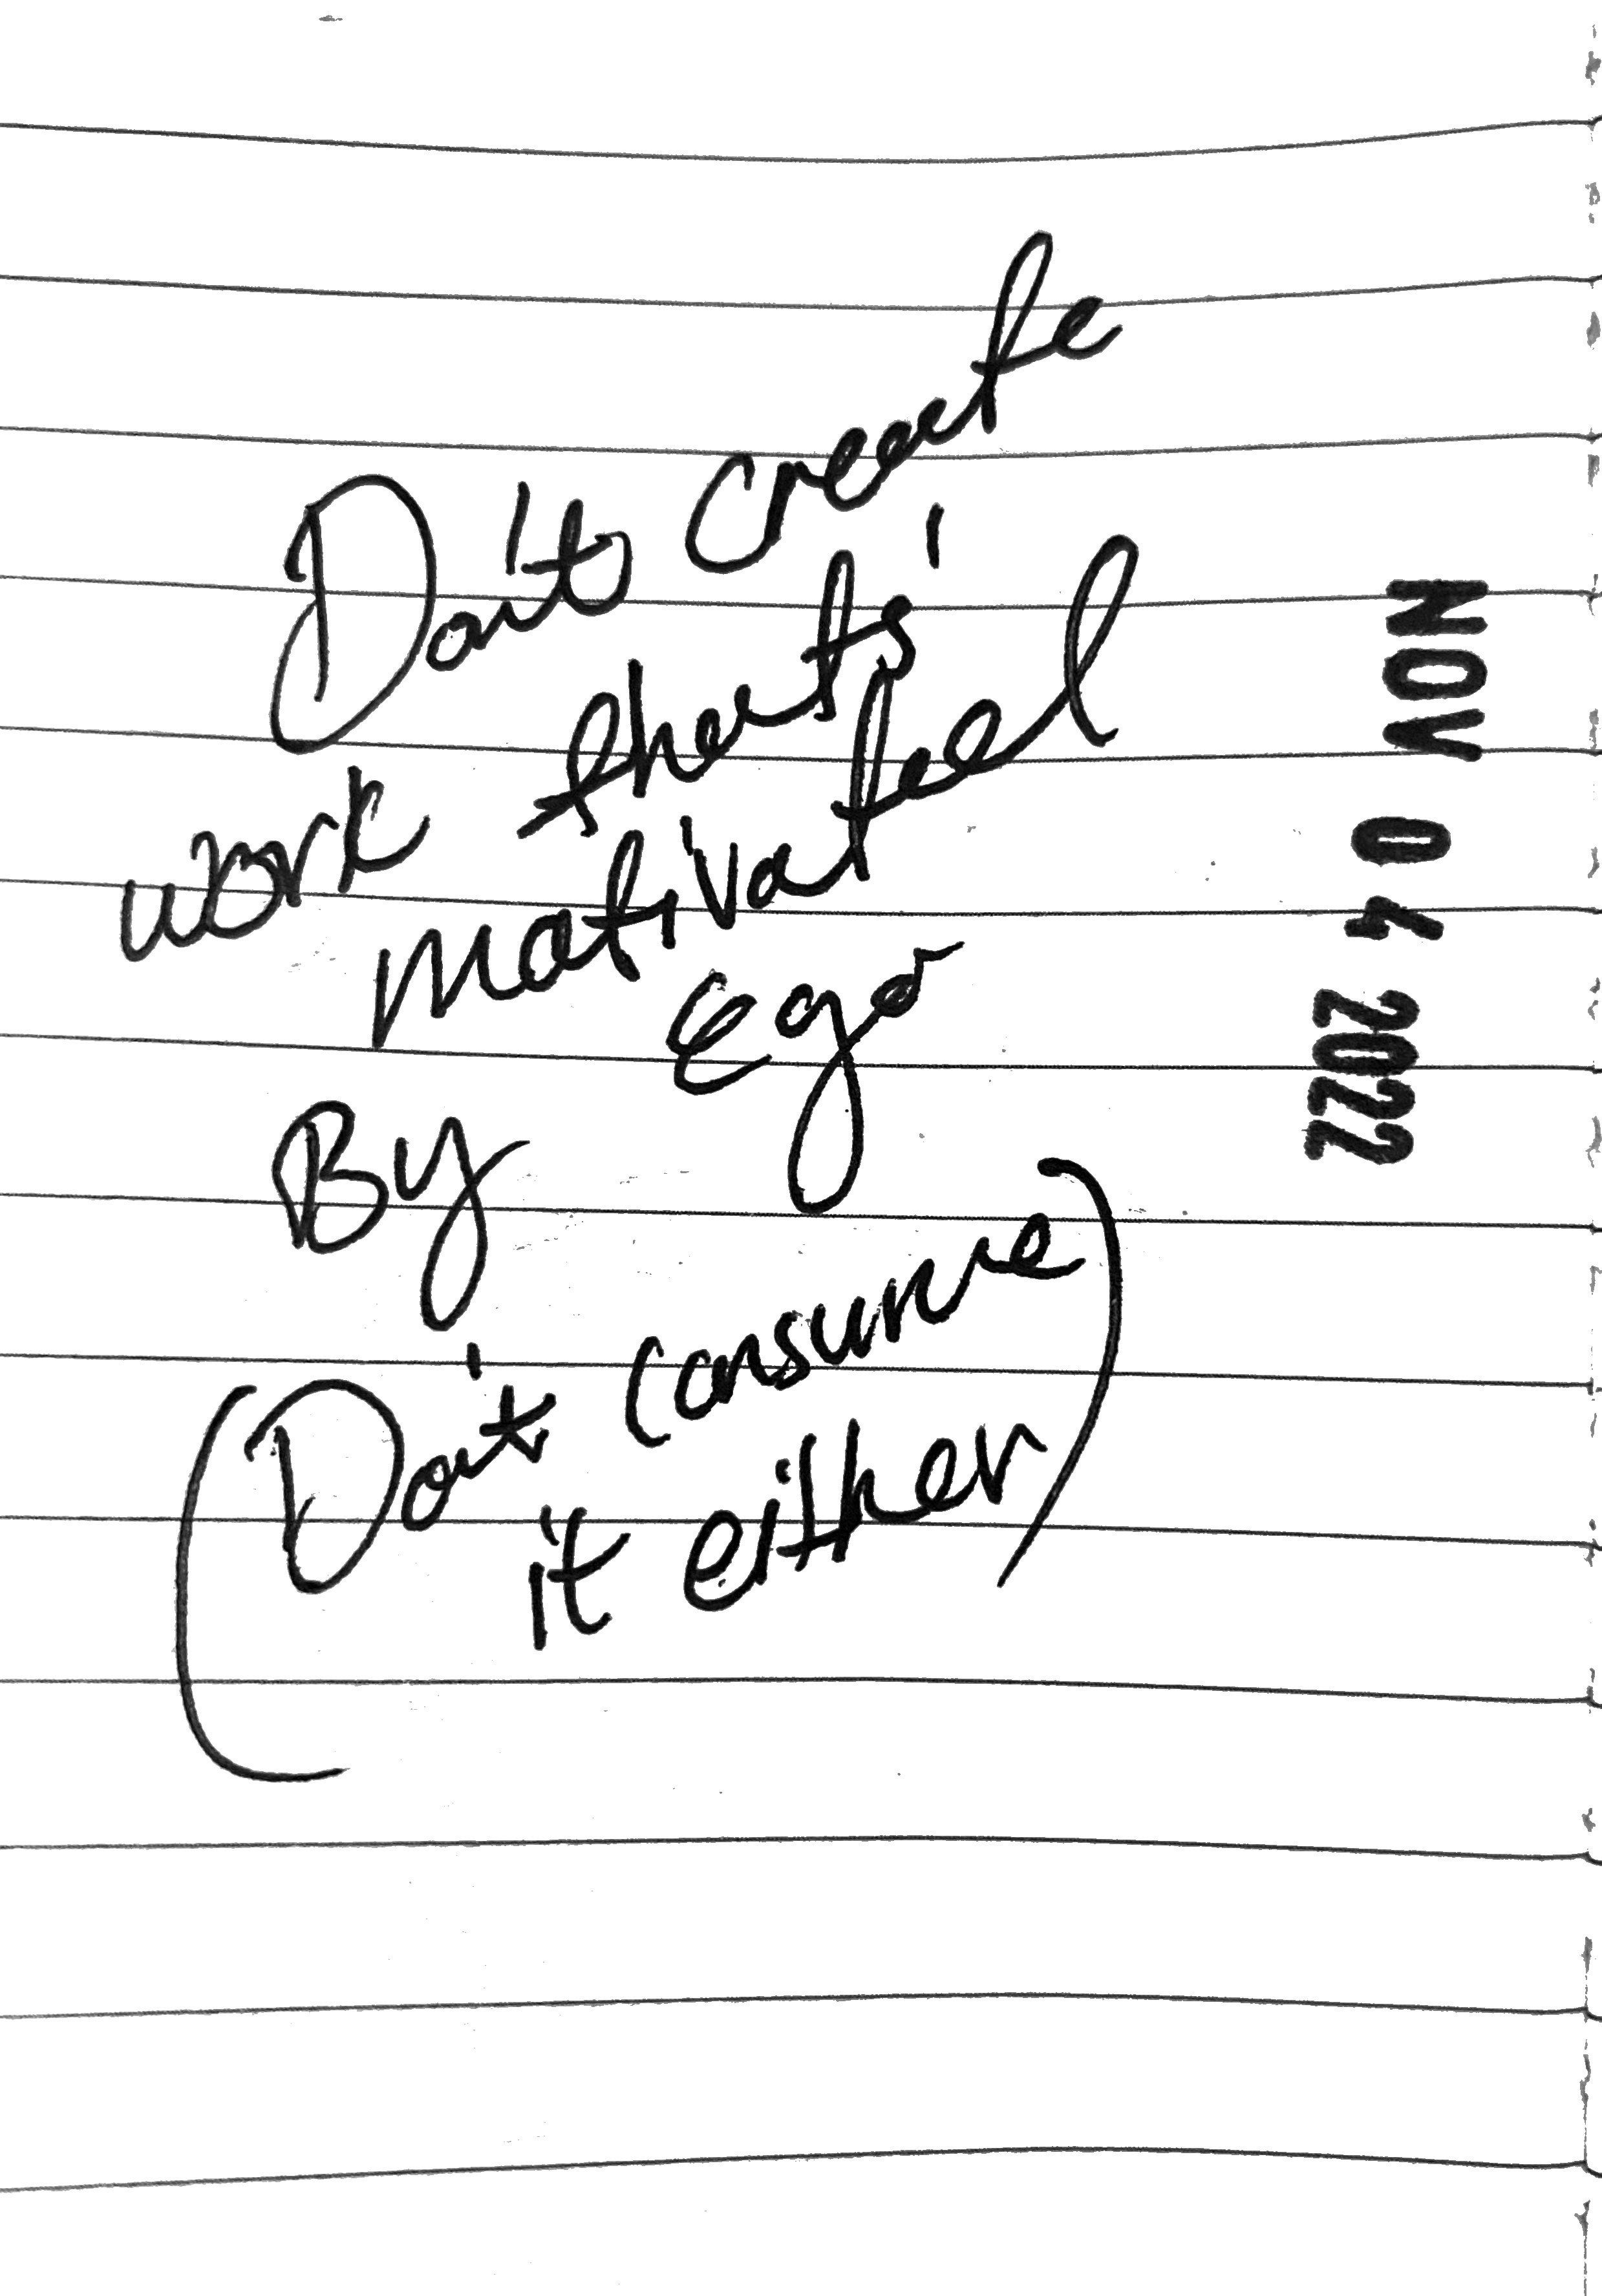 Don't create
work that's'
motivated
By Ego
(Don't consume
it either)
NOV 04 2022